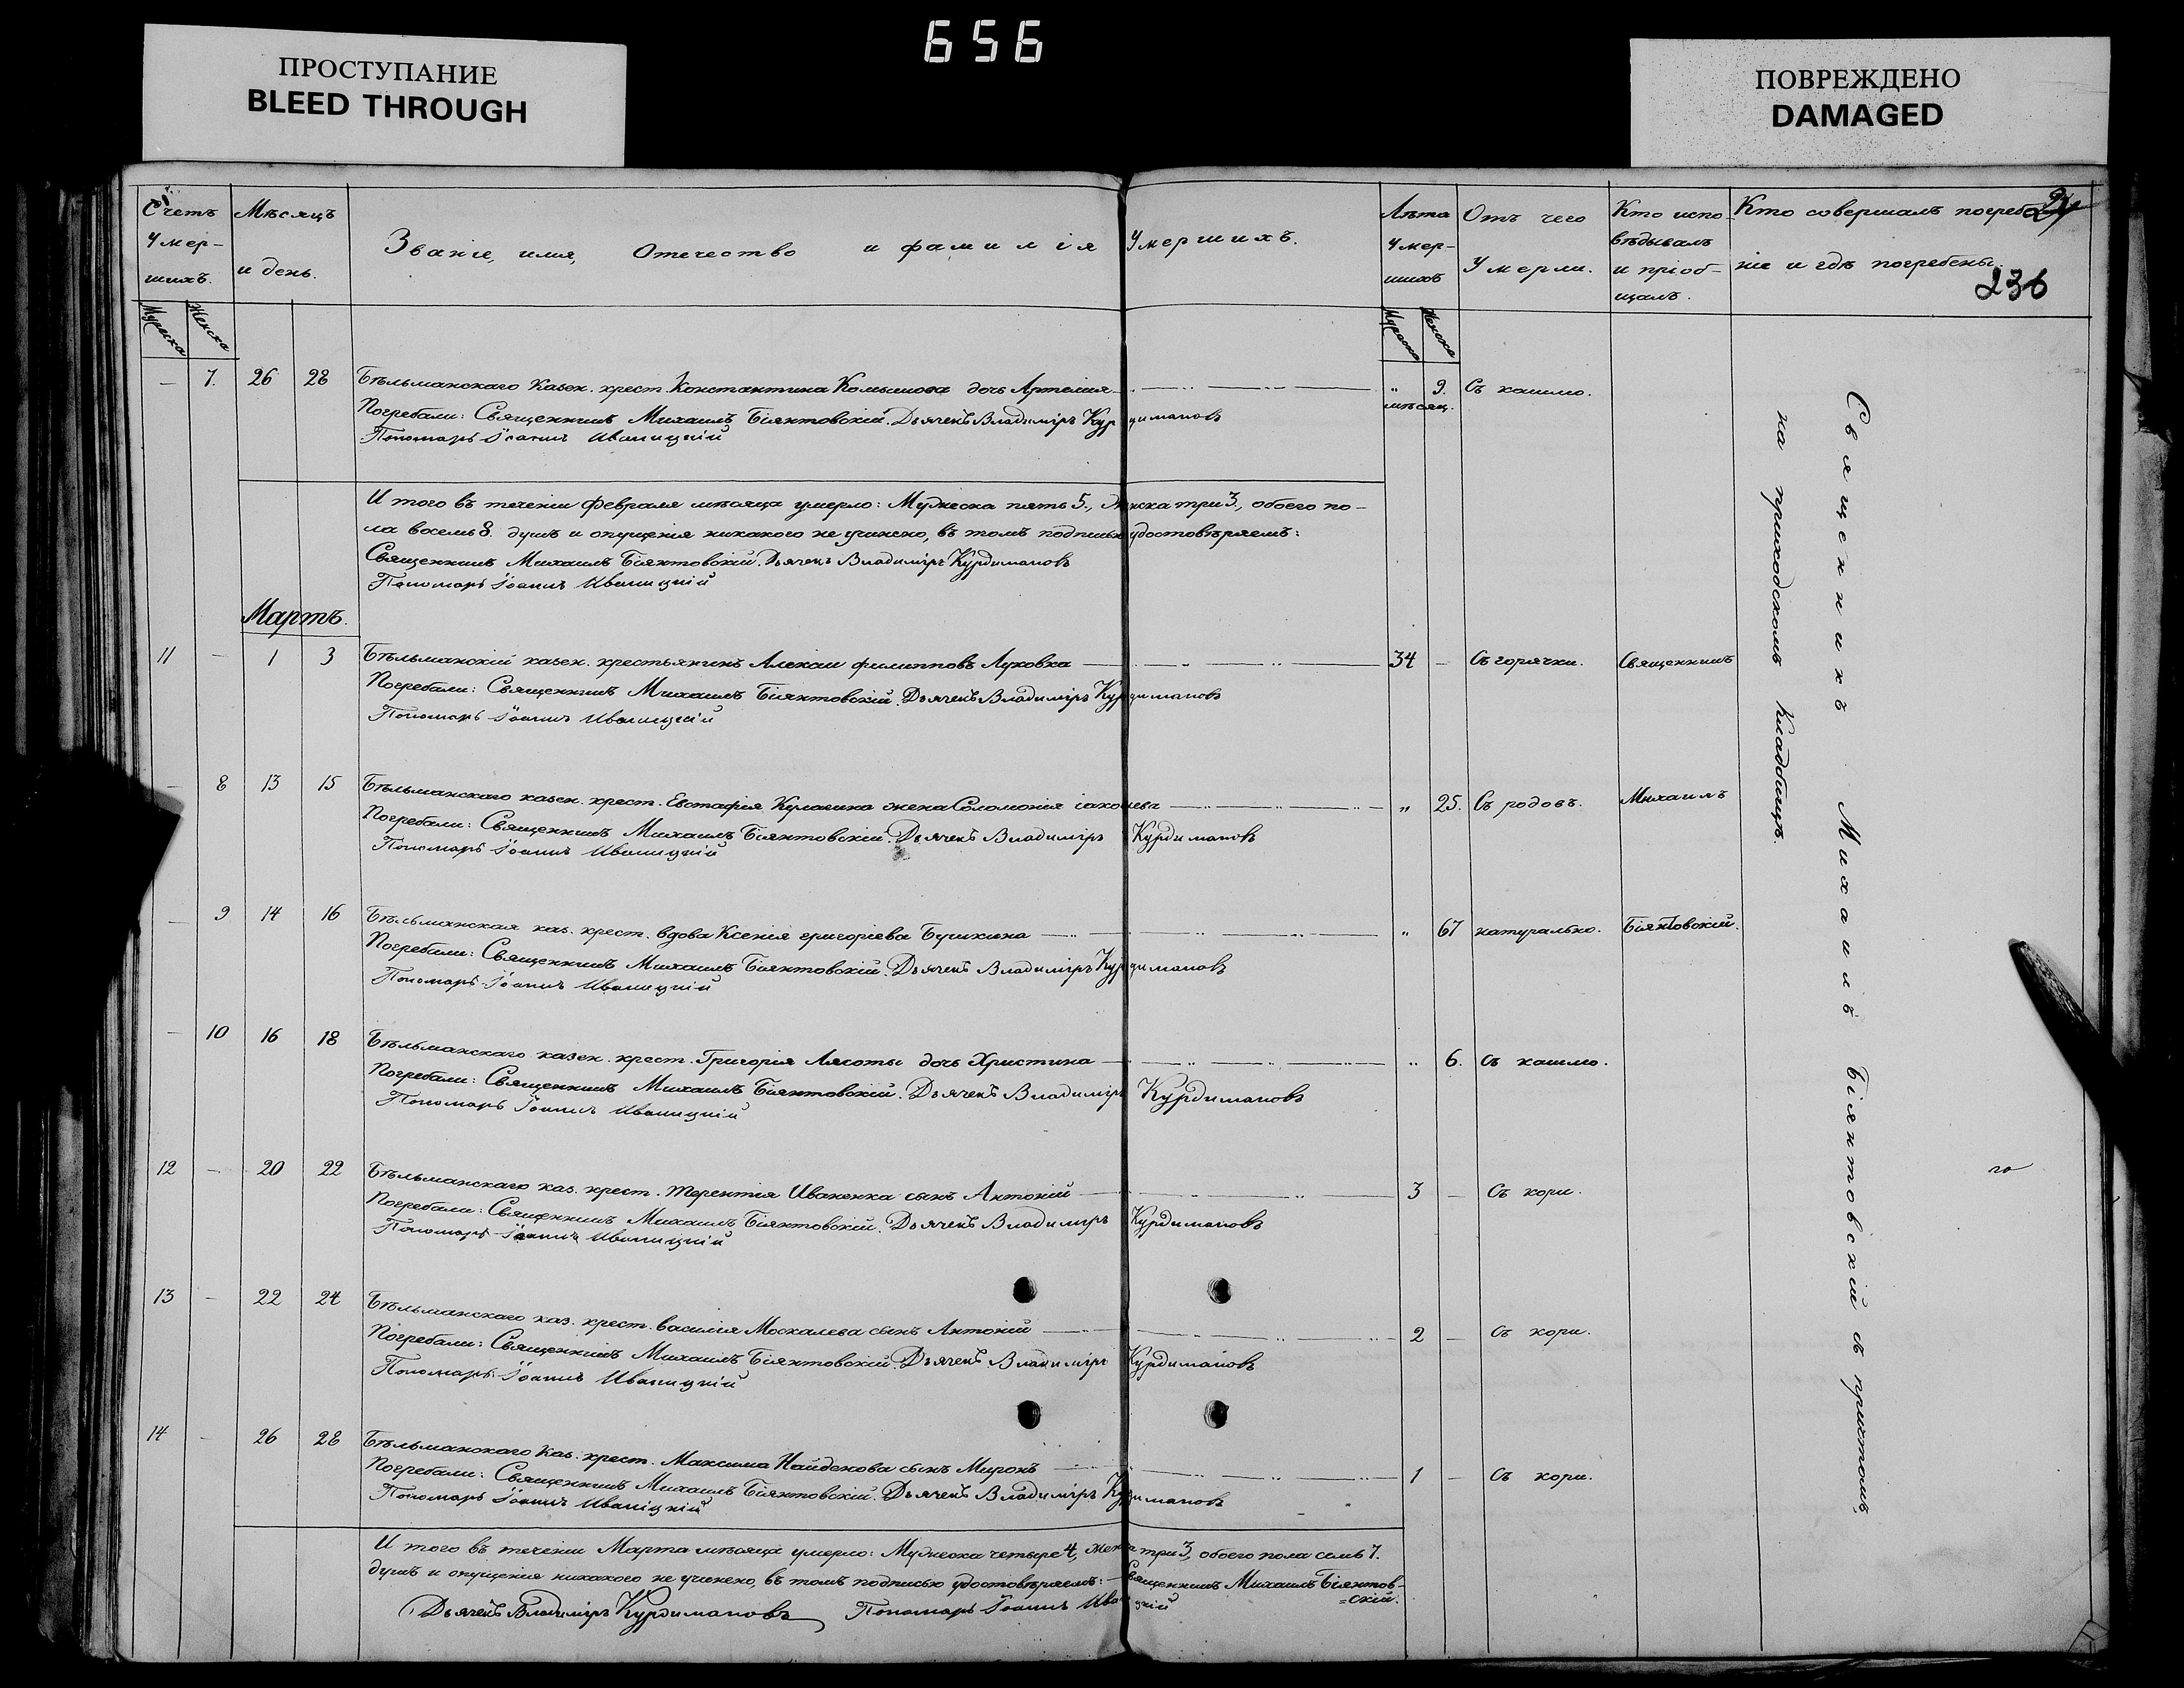 656
ПРОСТУПАНИЕ
BLEED THROUGH
ПОВРЕЖДЕНО
DAMAGED
236
Счетъ Умер-шихъ.
Мѣсяцъ и день.
Званіе, имя, Отечество и фамилія Умершихъ.
Лѣта Умер-шихъ
Отъ чего Умерли.
Кто испо-вѣдывалъ и пріоб-щалъ.
Кто совершалъ погребе ніе и гдѣ погребены.
Мужеска Женска
Мужеска Женска
— 7. 26 28 Бѣльманскаго Казен. крест. Константина дочь Артемия „ 9. мѣсяц. Съ кашлю.
Погребали: Священникъ Михаилъ Біянтовскій. Дьячекъ Владиміръ Курдимановъ
Пономарь Іоаннъ Иваницкій
И того въ теченіи Февраля мѣсяца умерло: Мужеска пять 5., Женска три 3., обоего по-
ла восемь 8. душъ и опущенія никакого не учинено, въ томъ подписью удостовѣряемъ:
Священникъ Михаилъ Біянтовскій. Дьячекъ Владиміръ Курдимановъ
Пономарь Іоаннъ Иваницкій
Мартъ.
11 — 1 3 Бѣльманскій казен. крестьянинъ Алексій филипповъ Луковка 34 — Съ горячки. Священникъ
Погребали: Священникъ Михаилъ Біянтовскій. Дьячекъ Владиміръ Курдимановъ
Пономарь Іоаннъ Иваницкій
— 8 13 15 Бѣльманскаго казен. крест. Евстафія жена Соломонія іаковлева „ 25. Съ родовъ. Михаилъ
Погребали: Священникъ Михаилъ Біянтовскій. Дьячекъ Владиміръ Курдимановъ
Пономарь Іоаннъ Иваницкій
— 9 14 16 Бѣльманская каз. крест. вдова Ксенія григоріева Бушкина „ 67 натурально. Біянтовскій.
Погребали: Священникъ Михаилъ Біянтовскій. Дьячекъ Владиміръ Курдимановъ
Пономарь Іоаннъ Иваницкій
— 10 16 18 Бѣльманскаго казен. крест. Григорія Лясоты дочь Христина „ 6. Съ кашлю.
Погребали: Священникъ Михаилъ Біянтовскій. Дьячекъ Владиміръ Курдимановъ
Пономарь Іоаннъ Иваницкій
12 — 20 22 Бѣльманскаго каз. крест. Терентія Иваненка сынъ Антоній 3 — Съ кори.
Погребали: Священникъ Михаилъ Біянтовскій. Дьячекъ Владиміръ Курдимановъ
Пономарь Іоаннъ Иваницкій
13 — 22 24 Бѣльманскаго каз. крест. Василія Москалева сынъ Антоній 2 — Съ кори.
Погребали: Священникъ Михаилъ Біянтовскій. Дьячекъ Владиміръ Курдимановъ
Пономарь Іоаннъ Иваницкій
14 — 26 28 Бѣльманскаго Каз. крест. Максима Найденова сынъ Миронъ 1 — Съ кори.
Погребали: Священникъ Михаилъ Біянтовскій. Дьячекъ Владиміръ Курдимановъ
Пономарь Іоаннъ Иваніцкій
И того въ теченіи Марта мѣсяца умерло: Мужеска четыре 4, женска три 3, обоего пола семь 7.
душъ и опущенія никакого не учинено, въ томъ подписью удостовѣряемъ: Священникъ Михаилъ Біянтов-
=скій.
Дьячекъ Владиміръ Курдимановъ Пономарь Іоаннъ Иваницкій
Священникъ Михаилъ Біянтовскій съ причтомъ,
на приходскомъ Кладбищѣ.
го